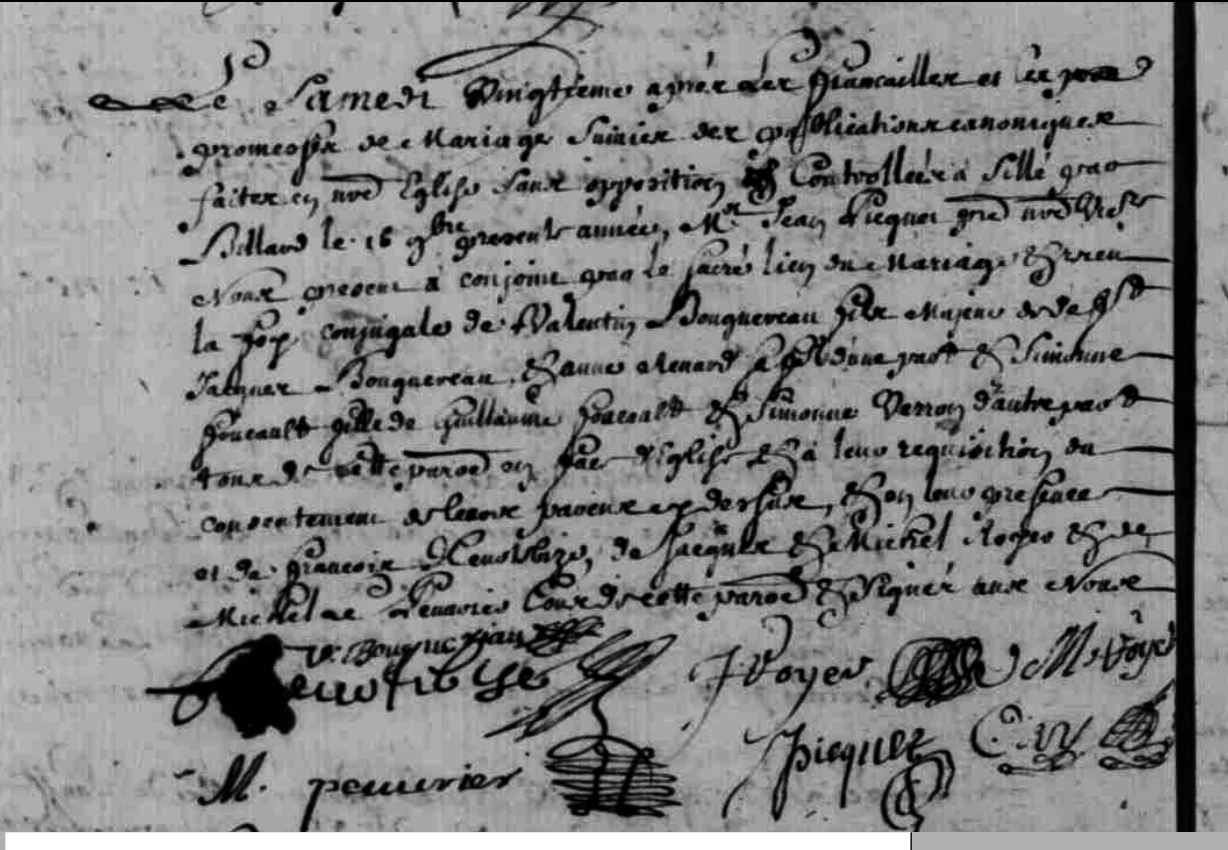 Le Samedi Vingtiéme aprés Les fiancailles et les
promesses de Mariage Suivies des publications canoniques
faites en nre Eglise sans opposition Controllées à Sillé par
Billard le 16 9bre presente année, Mr Jean Picquer pre nre
Nous present à conjoint par le sacré lien du Mariage &
la foy conjugale de Valentin Bouquereau fils Majeur de
Jacques Bouquereau, & anne Renard d'une part & Simonne
foucault fille de Guillaume foucault & Simonne Verron d'autre part
tous de cette paroe en face d'Eglise & à leur requisition du
consentement de leurs parens cy dessus, & en leur presence
et de francois, de Jacques & Michel & de
Michel tous de cette paroe & Signés avec Nous
V. Bouquereau
J Voyer M. Voyer
M. peuvrier
Picquer